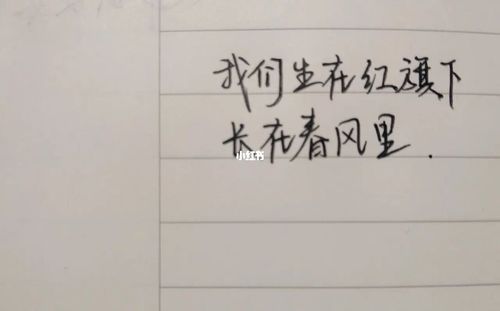 我们生在红旗下
长在春风里.
小红书